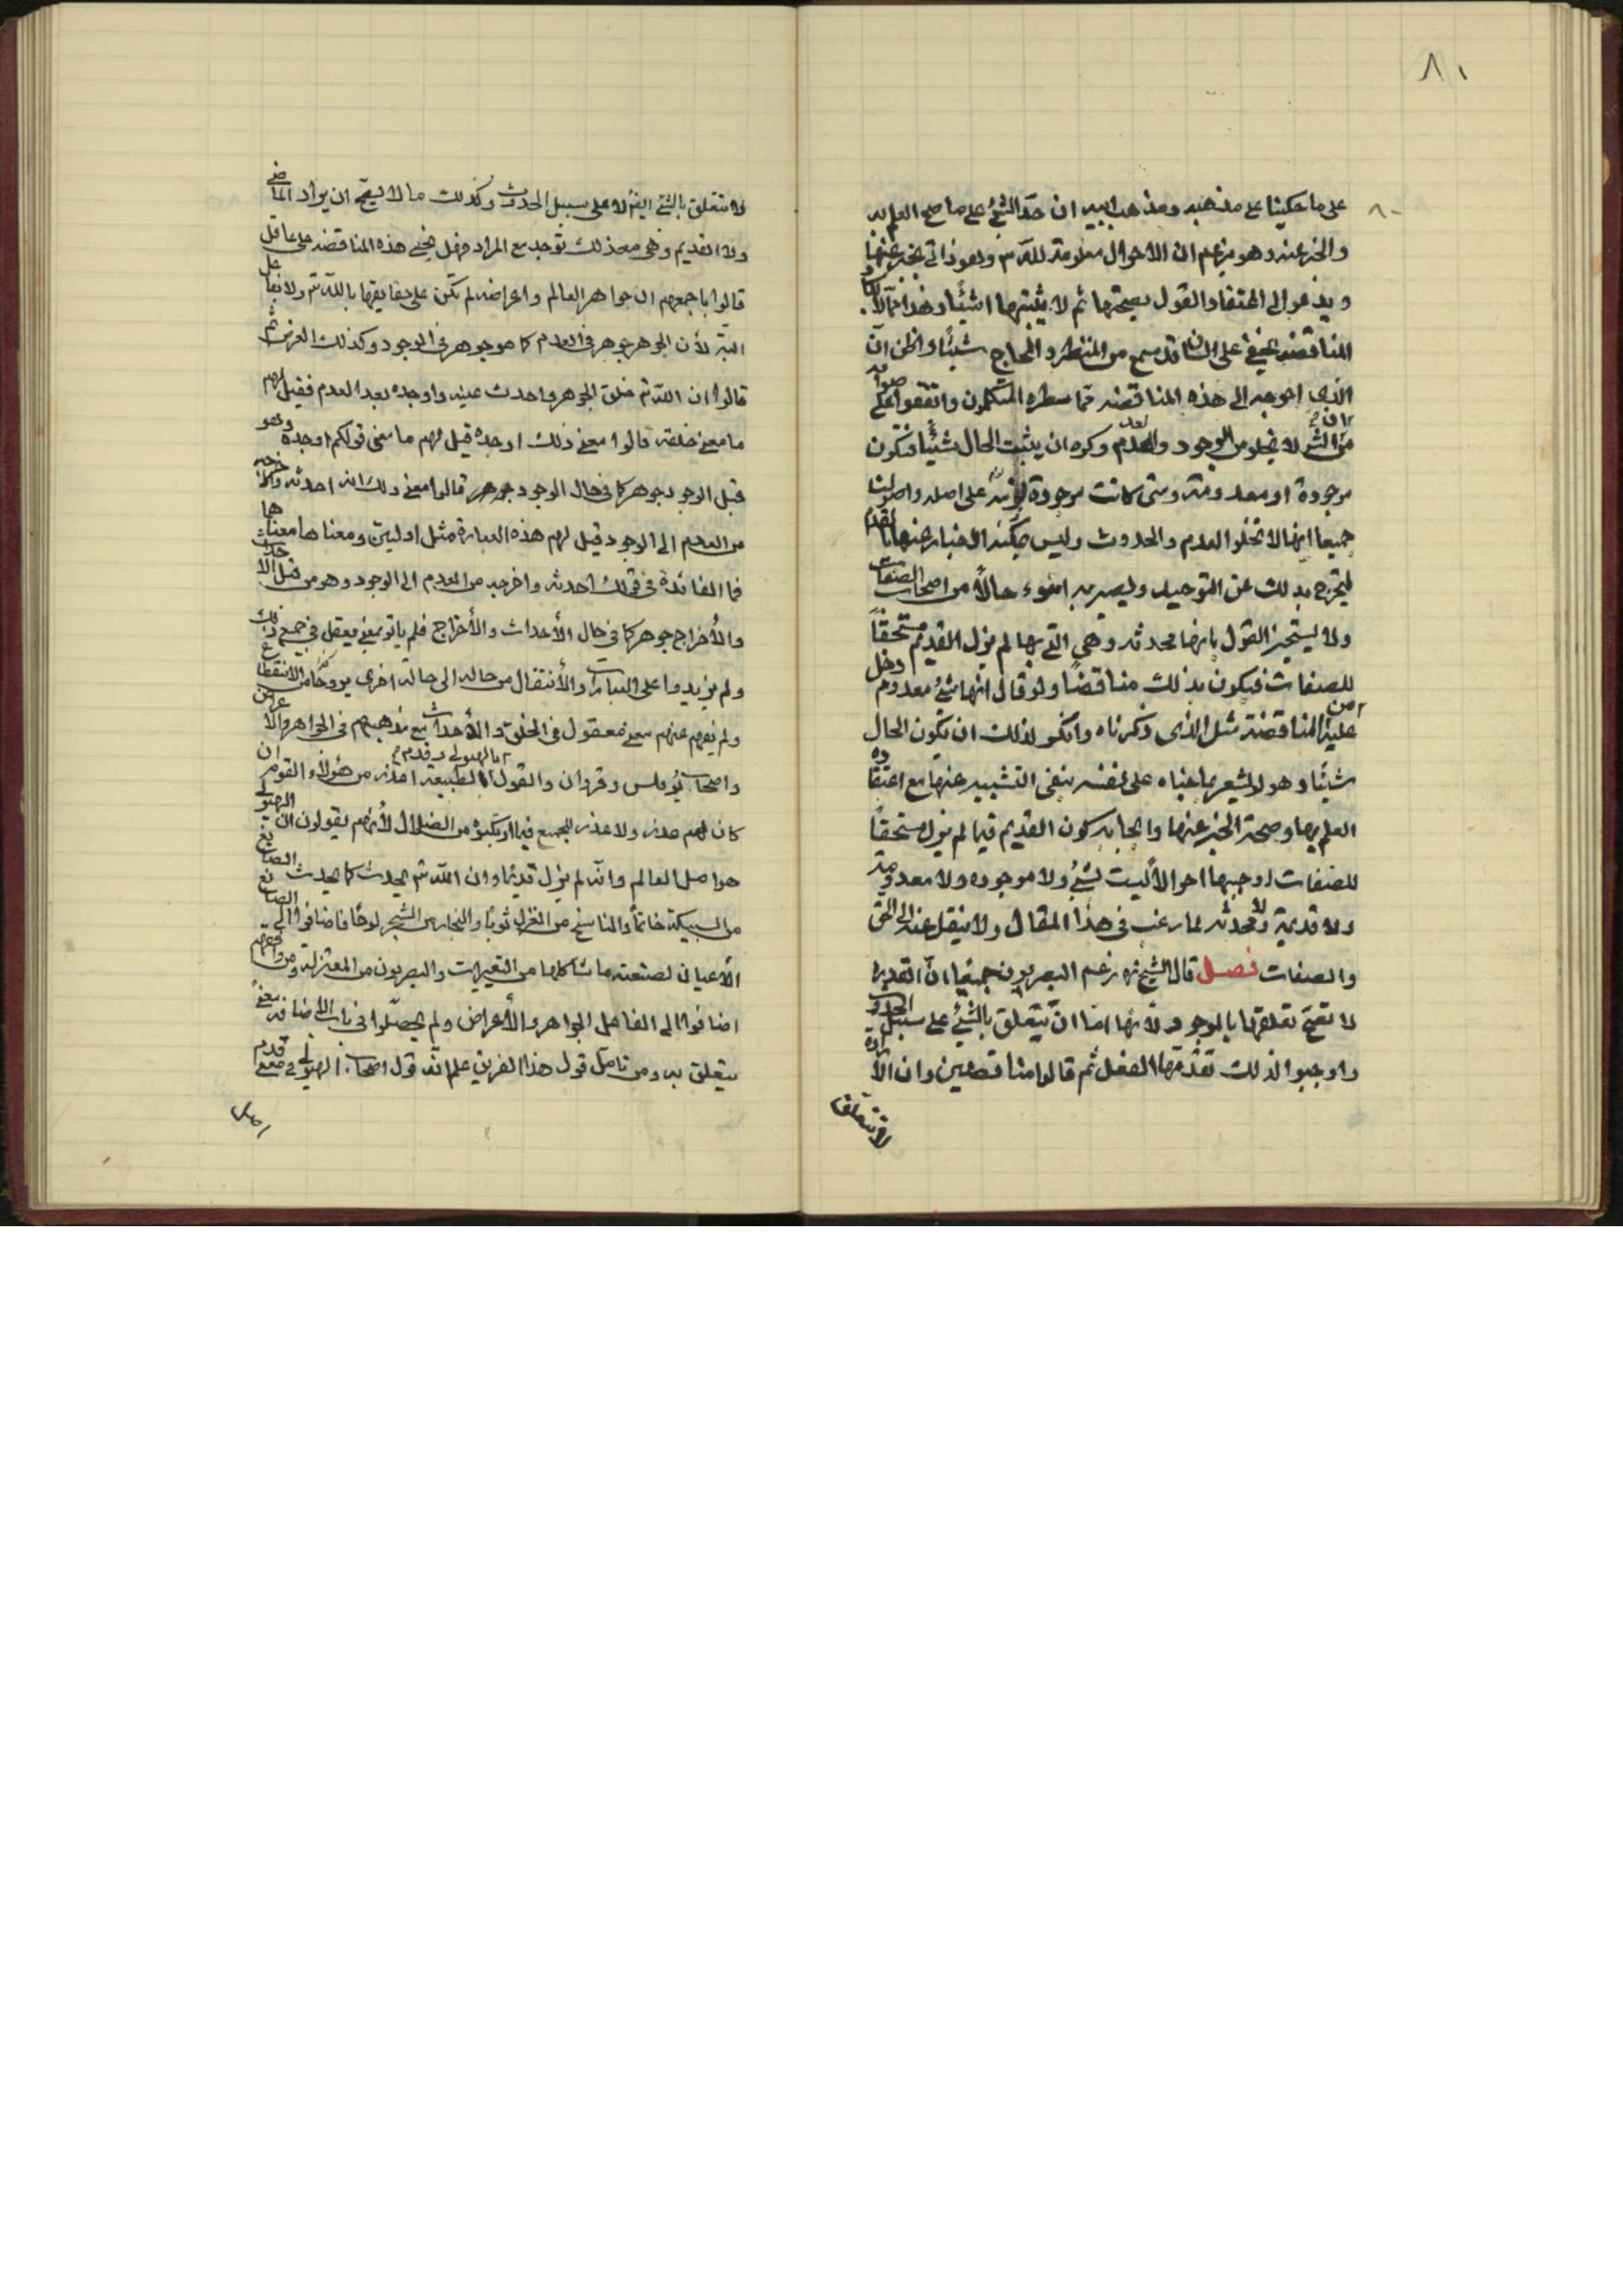 ٨١
٨٠
على ما حكينا على مذهبه ومذهب ابيه ان حدّ الشئ على ما صح العلم به
والخبر عنه وهو يزعم ان الاحوال معلومة لله تع وهو ذاتى يخبر عنها
ويدعو الى اعتقاد القول بصحتها ثم لا يثبتها اشيئاً وهذا مما لا يكاد
المناقضه يخفى على انسان قد سمع من النظر والحجاج شيئًا واظن ان
الذى احوجه الى هذه المناقضه ممّا سطره المتكلمون واتفقوا على صوابه
من ان الشئ لا يخلو من الوجود والعدم وكره ان يثبت الحال شيئًا فتكون
موجودة او معدومة ومتى كانت موجودة لزمه على اصله واصولنا
جميعا انها لا تخلو العدم والحدوث وليس يمكنه الاخبار عنها بالقدم
ليخرج بذلك عن التوحيد ويصير به اسوء حالاً من اصحاب الصفات
ولا يستجيز القول بانها محدثه وهى التى بها لم يزل القديم تع مستحقاً
للصفات فيكون بذلك مناقضًا ولو قال انها شئ معدوم دخل
عليه من المناقضة مثل الذى ذكرناه وانكر لذلك ان تكون الحال
شيئًا وهو لا يشعر بما جناه على نفسه بنفى التشبيه عنها مع اعتقاده
العلم بها وصحة الخبر عنها وايجابه كون القديم فيما لم يزل مستحقاً
للصفات اوجبها احوالاً ليست بشئ ولا موجوده ولا معدومة
ولا قديمة ولا محدثه لما رغب فى هذا المقال ولا ينتقل عنه الى الحق
والصفات فصل قال الشيخ ره زعم البصريون جميعاً انّ القدرة
لا تصحّ تعلقها بالموجود لانها امّا ان تتعلق بالشئ على سبيل الحدوث
واوجبوا لذلك تقدّمها الفعل ثم قالوا مناقضين وان الارادة
لا تتعلق
لا تتعلق بالشئ ايضًا لا على سبيل الحدوث وكذلك ما لا يصحّ ان يراد الماضى
ولا القديم وهى مع ذلك توجد مع المراد وهل يخفى هذه المناقضه على عاقل
قالوا باجمعهم ان جواهر العالم واعراضه لم تكن على حقايقها بالله تع ولا بفاعل
البتّه لأن الجوهر جوهر فى العدم كما هو جوهر فى الوجود وكذلك العرض ثم
قالوا ان الله تع خلق الجوهر واحدث عينه واوجده بعد العدم فقيل لهم
ما معنى خلقه قالوا معنى ذلك اوجده قيل لهم ما معنى قولكم اوجده وهو
قبل الوجود جوهر كما فى حال الوجود جوهر قالوا معنى ذلك انه احدثه واخرجه
من العدم الى الوجود قيل لهم هذه العبارة مثل اوليين ومعناها معناهما
فما الفائدة فى قولك احدثه واخرجه من العدم الى الوجود وهو من قبل الاحداث
والأخراج جوهر كما فى حال الأحداث والأخراج فلم ياتو بمعنى يعقل فى جميع ذلك
ولم يزيدوا على العبارات والأنتقال من حاله الى حالة اخرى روحًا من الانقطاع
ولم نفهم عنهم معنى معقول فى الخلق والأحداث مع مذهبهم فى الجواهر والاعراض
واصحاب برقلس وقروان والقول بالهيولى وقدم الطبيعة اعذر من هؤلاء القوم ان
كان لهم عذر ولا عذر للجميع فيما ارتكبوه من الضلال لأنهم يقولون ان الهيولى
هو اصل العالم وانّه لم يزل قديمًا وان الله تع يحدث كما يحدث الصايغ
من السبيكة خاتمًا والناسج من الغزل ثوبًا والنجار من الشجر لوحًا فاضافوا الى الصانع
الأعيان لصنعته ما شاكلها من التغيرات والبصريون من المعتزله ومن وافقهم
اضافوا الى الفاعل الجواهر والأعراض ولم يحصّلوا فى باب الاضافه معنى
يتعلق به ومن تامل قول هذا الفريق علم انّه قول اصحاب الهيولى فى معنى قدم
اصل